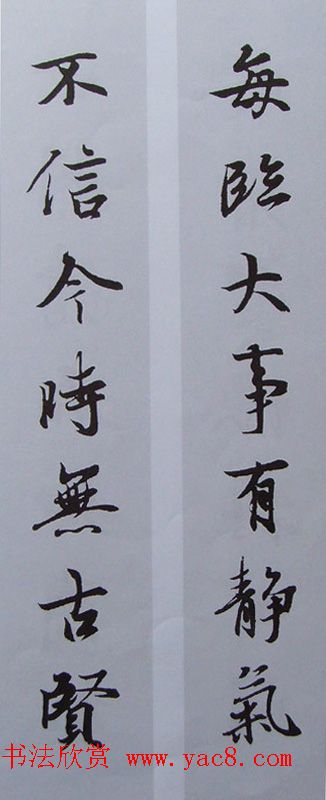 每臨大事有静氣
不信今時無古賢
书法欣赏 www.yac8.com